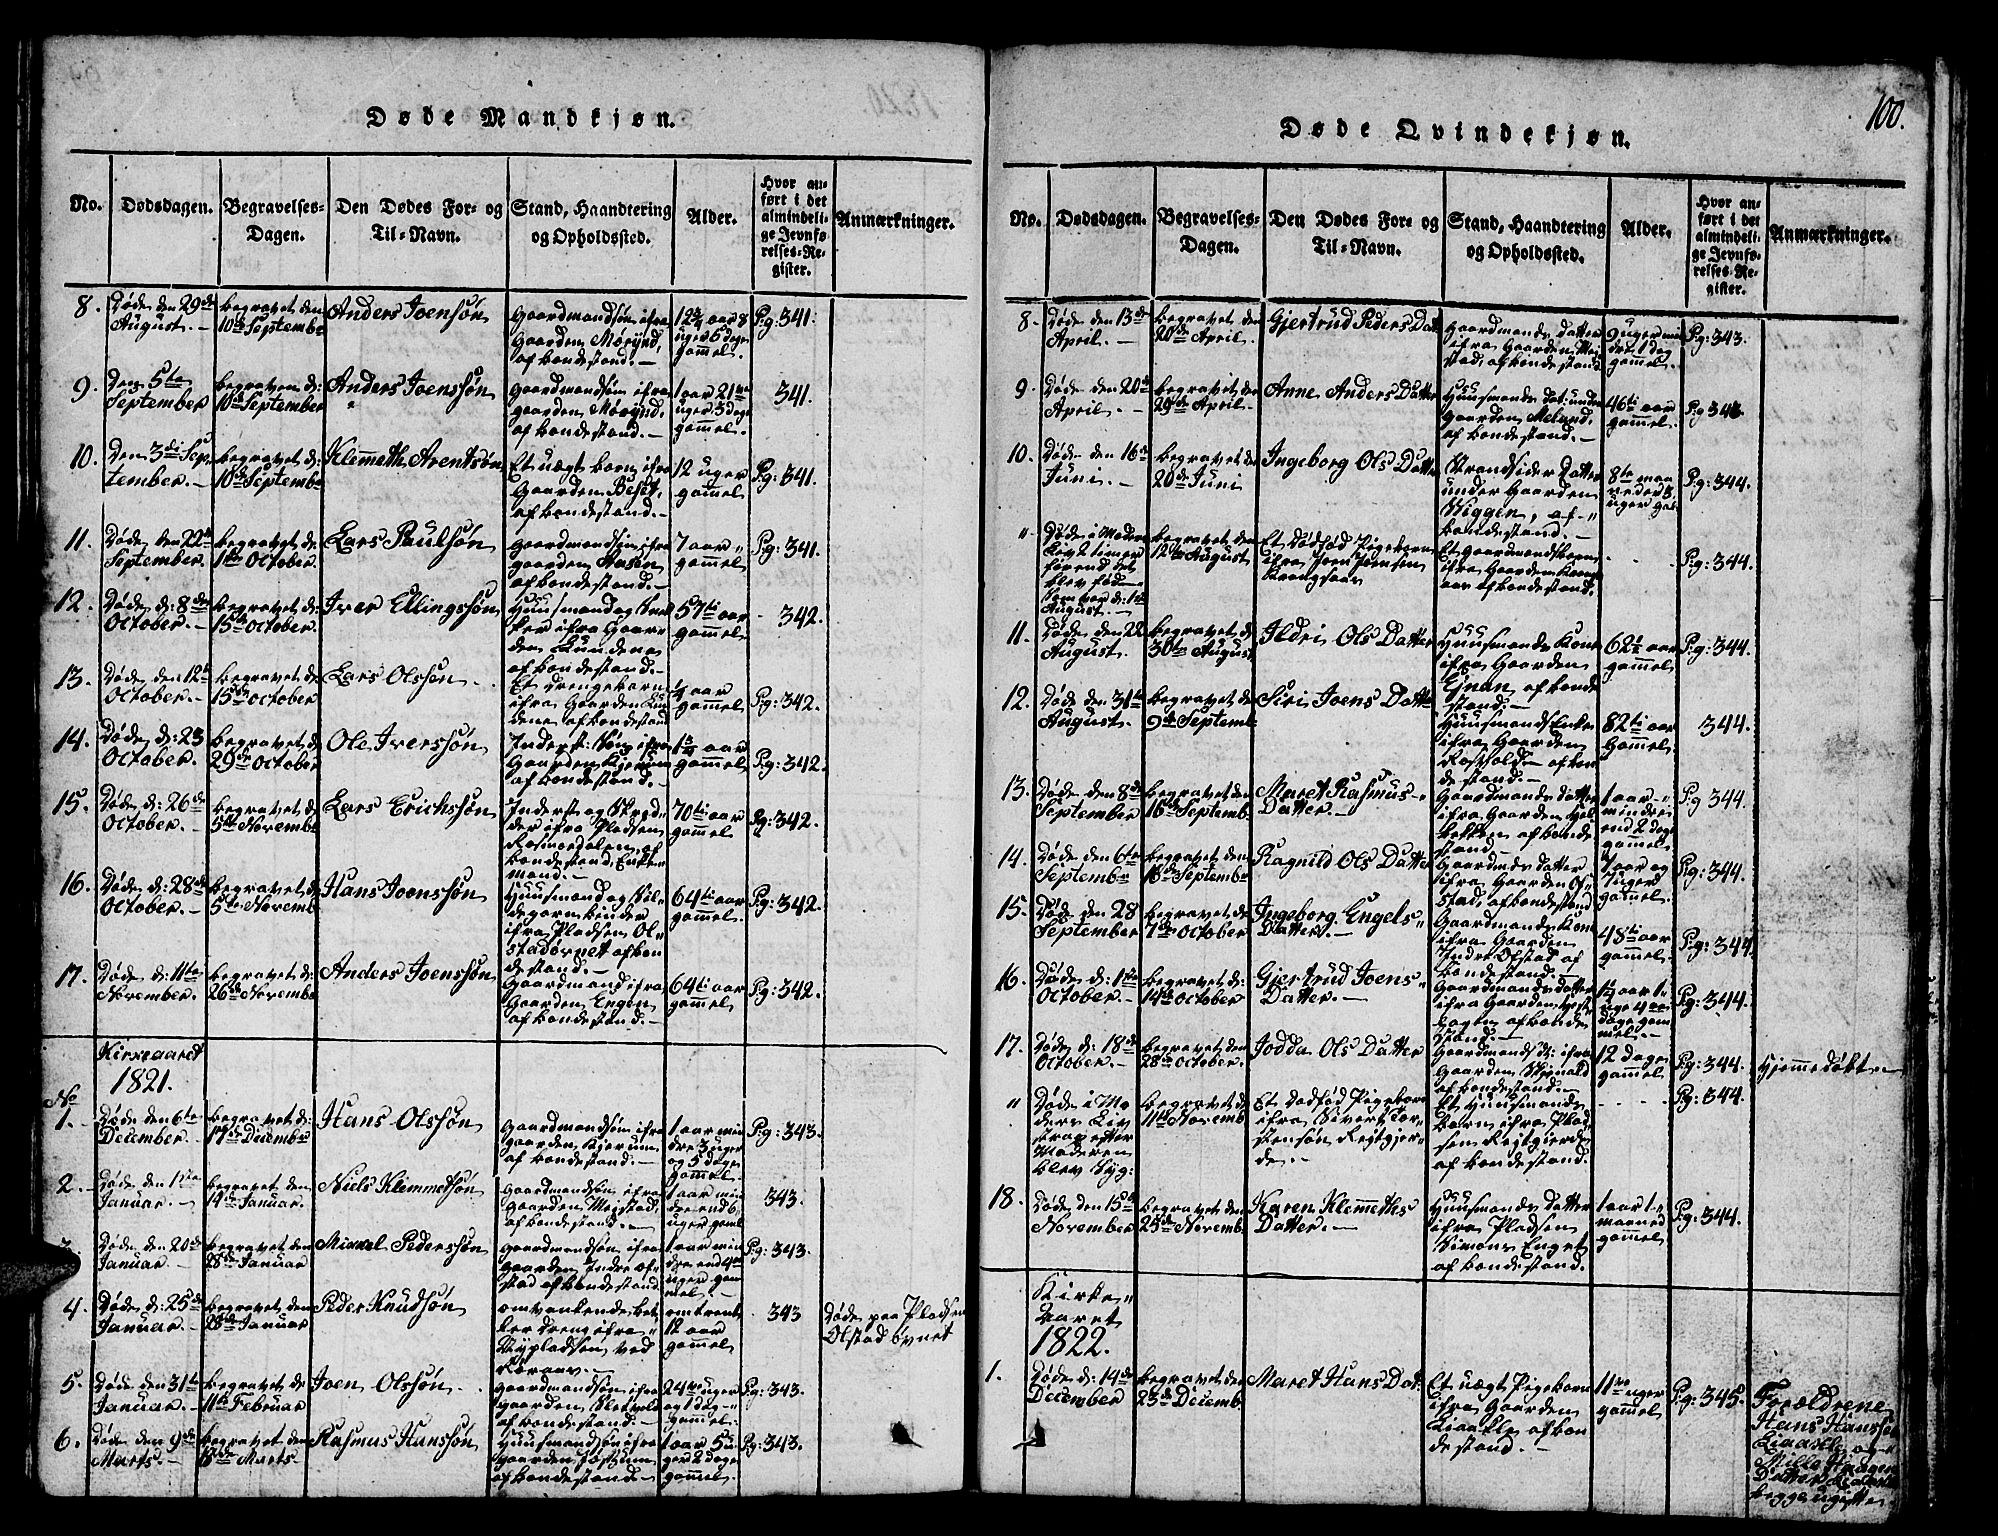 Døde Mandkjøn.
No.
Dødsdagen.
Begravelses-
Dagen.
Den Dødes For- og
Til-Navn.
Stand, Haandtering
og Opholdssted.
Alder.
Hvor an-
ført i det
almindeli-
ge Jevnfø-
relses-Re-
gister.
Anmærkninger.
8.
Døde den 29de
August.-
begravet den
10de September
Anders Joensøn
Gaardmandsøn ifra
Gaarden
af bondestand.-
12¾ aar 8
uger 5 dage
gammel.
Pg: 341.
9.
Den 5te
September
begraven d:
10de September
Anders Joenssøn
Gaardmandsøn ifra
gaarden
af bondestand.-
1 aar 21
uger 5 dage
gammel.
341.
10.
Den 3die Sep-
tember.-
begravet d:
10de Septembr
Klemmeth Arentsøn
Et uægt barn ifra
Gaarden Beset,
af bondestand.-
12 uger
gammel
Pg: 341.
11.
Døde den 22de
September.
begravet d:
1te October.
Lars Paulsøn
Gaardmandsøn ifra
gaarden Aasen
af bondestand.-
7 aar
gammel
Pg: 341.
12.
Døde d: 8de
October.-
begravet d:
15de October.
Iver Ellingssøn
Huusmand og
ker ifra Gaar-
den Lundene
af bondestand.-
57ti aar
gammel
342.
13.
Døde den 12te
October.-
begravet d:
15de October
Lars Olssøn.
Et drengebarn
ifra Gaarden Lun-
dene af bondestand
aar
gammel
Pg: 342.
14.
Døde d: 23
October.
begravet d
29de October
Ole Iverssøn
Inderst: Søn ifra
Gaarden
af bondestand.
aar
gammel
Pg: 342.
15.
Døde d: 26de
October.-
begravet d:
5te Novembr
Lars Erichssøn
Inderst og Skræd-
der ifra Pladsen
Rosmoedalen, af
bondestand, Enke-
mand.-
70ti aar
gammel
Pg: 342.
16.
Døde d: 28de
October.-
begravet d
5te Novemb
Hans Joenssøn
Huusmand og
ifra Pladsen Ol-
stadøvnet af bon
destand.-
64ti aar
gammel.
Pg: 342.
17.
Døde d: 11te
November.
begravet d:
26de Novembr
Anders Joenssøn
Gaardmand ifra
Gaarden Engen
af bondestand.-
64ti aar
gammel
Pg: 342.
Kirkeaaret
1821.
No
1.
Døde den 6te
December.
begravet d:
17de Decembr
Hans Olssøn
Gaardmandsøn ifra
gaarden Kjerum
af bondestand.-
1 aar min
dre 3 uger
og 5 dage
gammel
Pg: 343.
2.
Døde den 1ste
Januar.-
begravet den
14de Januar.
Niels Klemmetsøn
Gaardmandsøn ifra
gaarden Megstad,
af bondestand.-
1 aar min
dre end 6
uger gaml
343.
3.
Døde den 20de
Januar.-
begravet den
28de Januar
Mikkel Pederssøn
Gaardmandsøn ifra
gaarden Indre Ol-
stad af bondestand
1 aar min
dre end 4
uger gam
mel.
Pg: 343.
4.
Døde d: 25de
Januar.-
begravet den
28de Januar
Peder Knudsøn
omvankende bet-
ler dreng ifra
Nypladsen ved
Røraas.-
omtrent
12 aar
gammel
343
Døde paa Pladsen
Olstadøvnet
5.
Døde den 31te
Januar.-
begravet de
11te Februar
Joen Olssøn
Gaardmandsøn ifra
gaarden
af bondestand.-
24 uger
og 1 dag-
gammel.-
Pg: 343.
6.
Døde den 9de
Marts.-
begravet den
18de Marts
Rasmus Hanssøn
Huusmandsøn ifra
gaarden
af bondestand.-
1 aar 5 u
ger 2 dage
gammel
Pg: 343.
Døde Qvindekjøn.
100.
No.
Dødsdagen.
Begravelses-
Dagen.
Den Dødes For- og
Til-Navn.
Stand, Haandtering
og Opholdssted.
Alder.
Hvor an-
ført i det
almindeli-
ge Jevnfø-
relses-Re-
gister.
Anmærkninger.
8.
Døde den 13de
April.-
begravet den
20de April.
Gjertrud Peders Datt
Gaardmands datter
ifra Gaarden
stad, af bondestand
9 uger min
dre 1 dag
gammel.
Pg: 343.
9.
Døde den 20de
April.-
begravet den
29de April.
Anne Anders Datter
Huusmands dat: under
gaarden Meland
af bondestand.-
46ti aar
gammel.
Pg 343.
10.
Døde den 16de
Juni.-
begravet den
20de Juni
Ingeborg Ols Datter
Strandsidder Datter
under Gaarden
Viggen, af-
bondestand.-
8te maa
neder 3
uger gal
Pg: 344.
"
Døde i Moders
Liv 2 timer
førend det
blev fød-
som var d: 1ste
August.-
begravet den
12te August
Et Dødfød Pigebarn
ifra Joen Joensen
Krongsaas
Et gaardmandsbarn
ifra gaarden Kron
aas af bondestand.
Pg: 344.
11.
Døde den 22
August.
begravet d:
30te August
Ildri Ols Datter
Huusmands Kone
ifra Gaarden
Ejnan af bonde
stand.-
62 aar
gammel
Pg: 344.
12.
Døde den 31te
August.-
begravet d:
9de Septemb
Siri Joens Datter
Huusmands Enke
ifra Gaarden
af bon
destand.-
82ti aar
gamel
344.
13.
Døde den 8de
September
begravet den
16de Septemb.
Maret Rasmus-
Datter.-
Gaardmands datter
ifra Gaarden
af bonde
stand.-
1 aar-
mindre
end 2 dage
gammel
Pg 344.
14.
Døde den 6te
September
begravet den
16de Septembr
Ragnild Ols Datter
Gaardmds datter
ifra Gaarden Ol-
stad, af bondestand
aar og
7 uger
gammel.
Pg: 344.
15.
Død den 28
September
begravet d:
7de October
Ingeborg Engels-
Datter.-
Gaardmands Kone
ifra Gaarden
Indre Olstad af
bondestand.-
48ti aar
gammel.
Pg: 344.
16.
Døde d: 1ste
October.-
begravet d:
14de October
Gjertrud Joens-
Datter.-
Gaardmands datter
ifra Gaarden
af bonde
stand.-
aar 1
uge 4
dage gam
mel.-
Pg: 344.
17.
Døde d: 18de
October.-
begravet den
28de October.
Jodda Ols Datter
Gaardmands D: ifra
Gaarden
af bondestand.-
12 dage
gammel
Pg: 344.
Hjemmedøbt.
"
Døde i Mo
ders Liv
strax efter
Moderen
blev syg:
begravet den
11te Novemb
Et Dødfød Pigebarn
ifra Sivert Tor-
stensøn Rejtgjer-
de.-
Et Huusmands
barn ifra Plad
sen Rejtgjerde
af bondestand.
Pg: 344.
18.
Døde den 15de
November
begravet den
25de Novemb.
Karen Klemmeths
Datter.-
Huusmands datter
ifra Pladsen
Simons Enget
af bondestand.
1 aar 1-
maaned
gammel
Pg: 344.
Kirke-
Aaret
1822.
1.
Døde d: 14de
December
begravet den
23de Decemb.
Maret Hans Dat:
Et uægt Pigebarn
ifra Gaarden
Liaakle af bon
destand.-
11 uger
gammel.
Pg: 345.
Forældrene
Hans Hanssøn
Liaakle og
Datter
begge ugifte